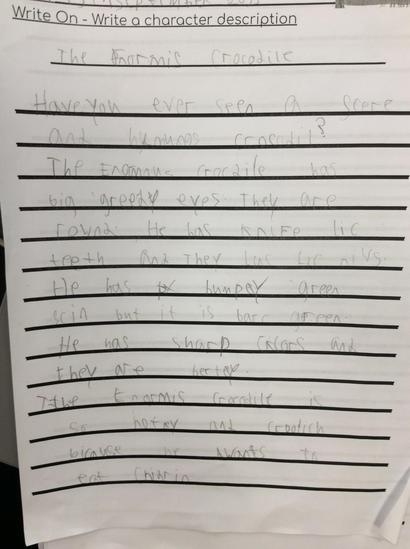 Write On - Write a character description
The Enormis Crocodile
Have you ever seen a scere
and humunos crocodil?
The Enormus Crocdile has
big greedy eyes. They are
round. He has KNIFE lic
teeth And They lus lic
He has bumpey green
scin but it is barc green.
He has sharp and
they are
The Enormis Crocodile is
so and
bicause he wants to
eat